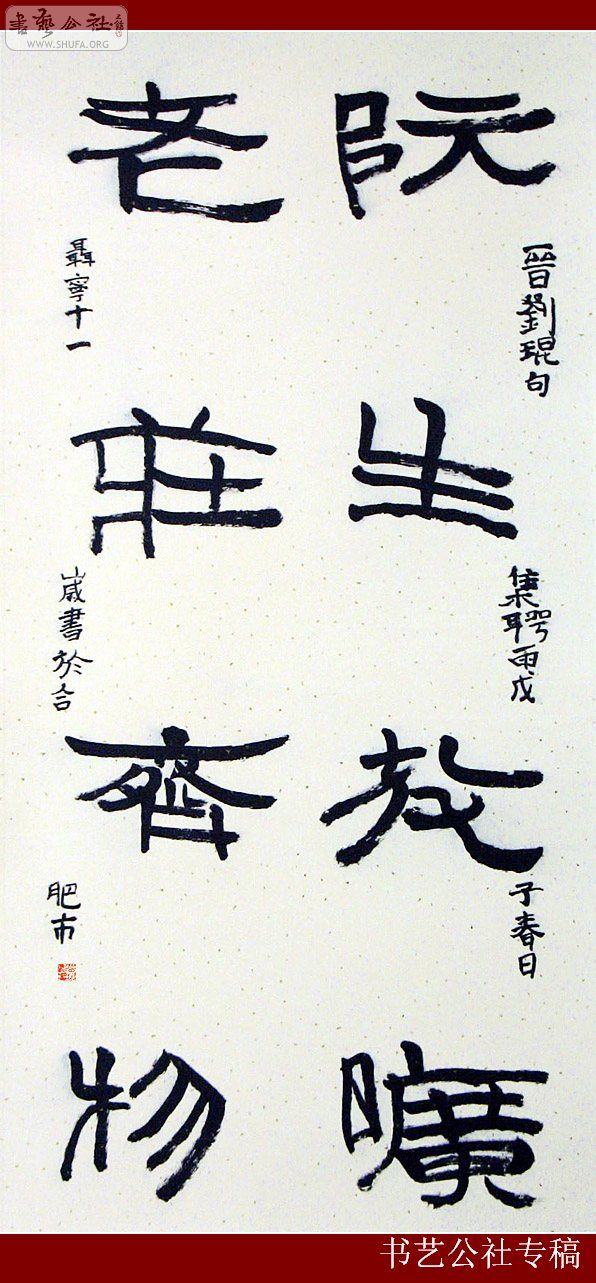 書藝公社
WWW.SHUFA.ORG
阮生放曠
晉劉琨句
集雨戊
子春日
老莊齊物
聶寧十一
歲書於合
肥市
书艺公社专稿